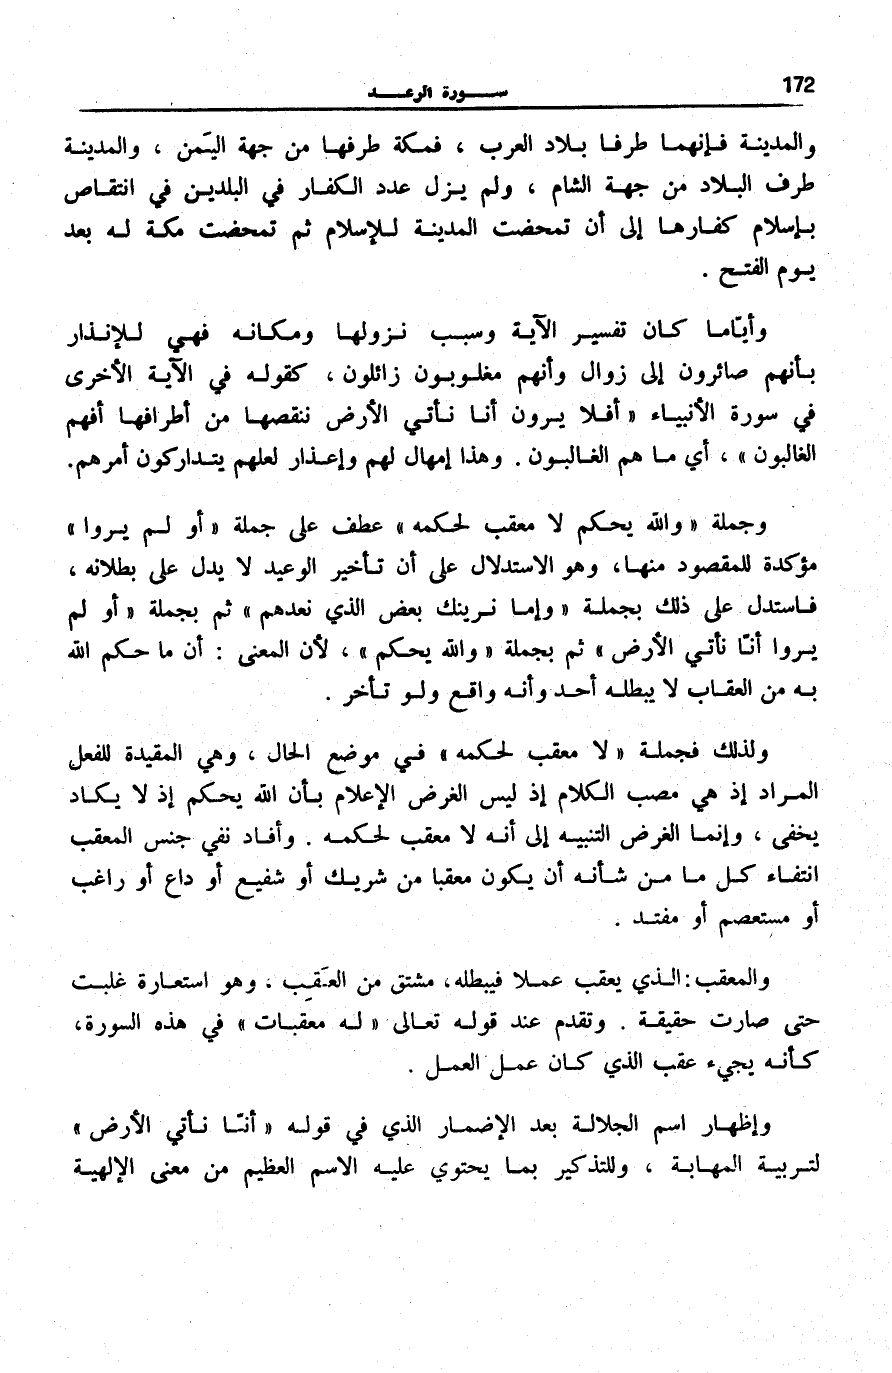 172
سورة الرعد
والمدينة فإنهما طرفا بلاد العرب ، فمكة طرفها من جهة اليَمن ، والمدينة
طرف البلاد من جهة الشام ، ولم يزل عدد الكفار في البلدين في انتقاص
بإسلام كفارها إلى أن تمحضت المدينة للإسلام ثم تمحضت مكة له بعد
يوم الفتح .
وأيّاما كان تفسير الآية وسبب نزولها ومكانه فهي للإنذار
بأنهم صائرون إلى زوال وأنهم مغلوبون زائلون ، كقوله في الآية الأخرى
في سورة الأنبياء « أفلا يرون أنا نأتي الأرض ننقصها من أطرافها أفهم
الغالبون » ، أي ما هم الغالبون . وهذا إمهال لهم وإعذار لعلهم يتداركون أمرهم.
وجملة « والله يحكم لا معقب لحكمه » عطف على جملة « أو لم يروا »
مؤكدة للمقصود منها، وهو الاستدلال على أن تأخير الوعيد لا يدل على بطلانه ،
فاستدل على ذلك بجملة « وإما نرينك بعض الذي نعدهم » ثم بجملة « أو لم
يروا أنّا نأتي الأرض » ثم بجملة « والله يحكم » ، لأن المعنى : أن ما حكم الله
به من العقاب لا يبطله أحد وأنه واقع ولو تأخر .
ولذلك فجملة « لا معقب لحكمه » في موضع الحال ، وهي المقيدة للفعل
المراد إذ هي مصب الكلام إذ ليس الغرض الإعلام بأن الله يحكم إذ لا يكاد
يخفى ، وإنما الغرض التنبيه إلى أنه لا معقب لحكمه . وأفاد نفي جنس المعقب
انتفاء كل ما من شأنه أن يكون معقبا من شريك أو شفيع أو داع أو راغب
أو مستعصم أو مفتد .
والمعقب : الذي يعقب عملا فيبطله، مشتق من العَقِب ، وهو استعارة غلبت
حتى صارت حقيقة . وتقدم عند قوله تعالى « له معقبات » في هذه السورة،
كأنه يجيء عقب الذي كان عمل العمل .
وإظهار اسم الجلالة بعد الإضمار الذي في قوله « أنّا نأتي الأرض »
لتربية المهابة ، وللتذكير بما يحتوي عليه الاسم العظيم من معنى الإلهية